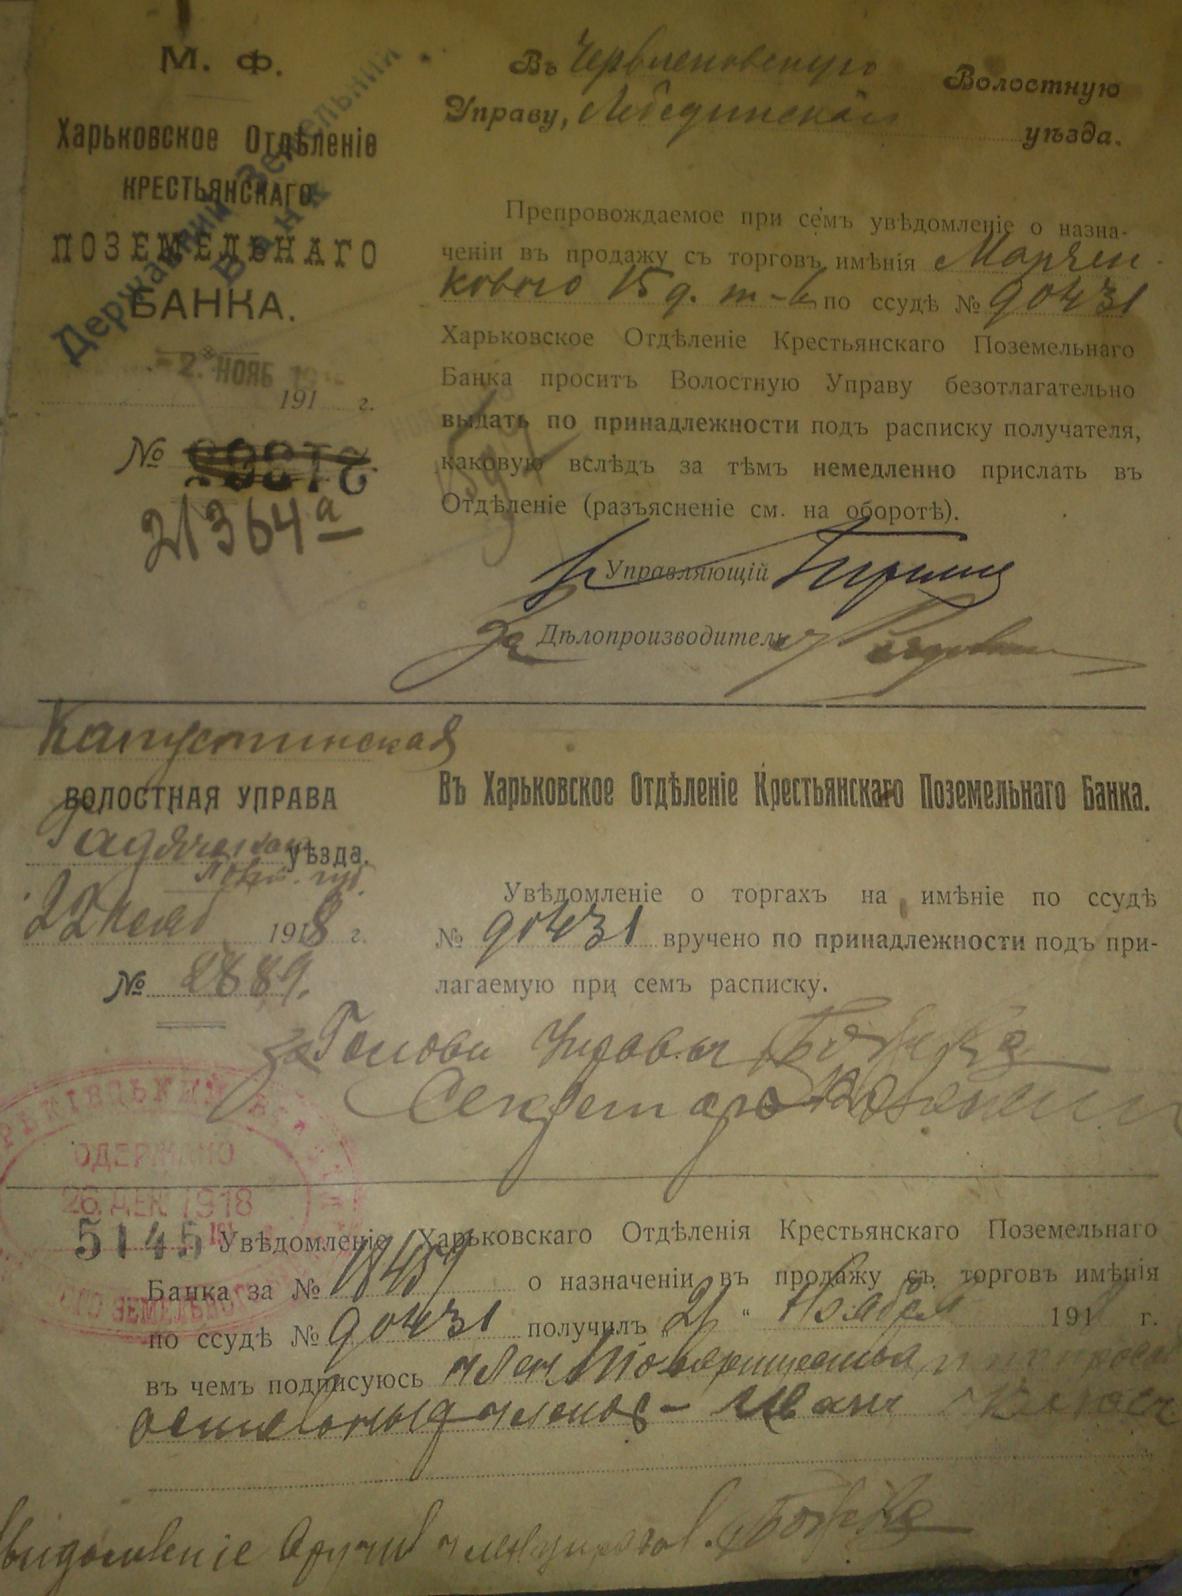 М. Ф.
Харьковское Отдѣленіе
КРЕСТЬЯНСКАГО
ПОЗЕМЕЛЬНАГО
БАНКА.
Державний Земельний
Банк
2. НОЯБ 19
191 г.
№
21364а
Въ Червленовскую Волостную
Управу, Лебединскаго уѣзда.
Препровождаемое при семъ увѣдомленіе о назна-
ченіи въ продажу съ торговъ имѣнія
15 д. т-ва по ссудѣ № 90431
Харьковское Отдѣленіе Крестьянскаго Поземельнаго
Банка проситъ Волостную Управу безотлагательно
выдать по принадлежности подъ расписку получателя,
каковую вслѣдъ за тѣмъ немедленно прислать въ
Отдѣленіе (разъясненіе см. на оборотѣ).
Управляющій
За Дѣлопроизводитель
Капустинская
ВОЛОСТНАЯ УПРАВА
Гадячскаго уѣзда.
Полт. губ.
22 нояб 1918 г.
№ 2889.
Въ Харьковское Отдѣленіе Крестьянскаго Поземельнаго Банка.
Увѣдомленіе о торгахъ на имѣніе по ссудѣ
№ 90431 вручено по принадлежности подъ при-
лагаемую при семъ расписку.
за Голови Управи
Секретарь
ОДЕРЖАНО
26 ДЕК 1918
5145
Увѣдомленіе Харьковскаго Отдѣленія Крестьянскаго Поземельнаго
Банка за № 18459 о назначеніи въ продажу съ торговъ имѣнія
по ссудѣ № 90431 получилъ „21 “ Ноября 191 г.
въ чемъ подписуюсь член Товарищества
остальных членов - Иван